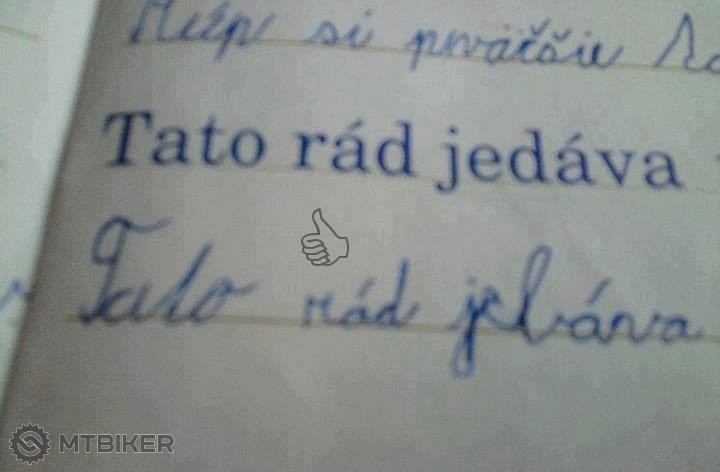 si prváčšie
Tato rád jedáva
Tato rád jebáva
MTBIKER